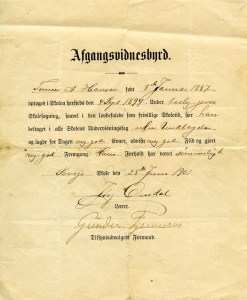 Afgangsvidnesbyrd.
A. Hansen født 8de Januar 1887
optaget i Skolen herfteds den 4 Sept 1894. Under
Skolesøgning, saavel i den lovbefalede som frivillige Skoletid, har han
deltaget i alle Skolens Undervisningsfag uden Undtagelse
og lagde for Dagen mg. god Evner, udviste mg. god Flid og gjort
mg. god Fremgang. Hans Forhold har været
Skole den 28de Juni 1901
Lærer.
Gunder
Tilsynsudvalgets Formand.